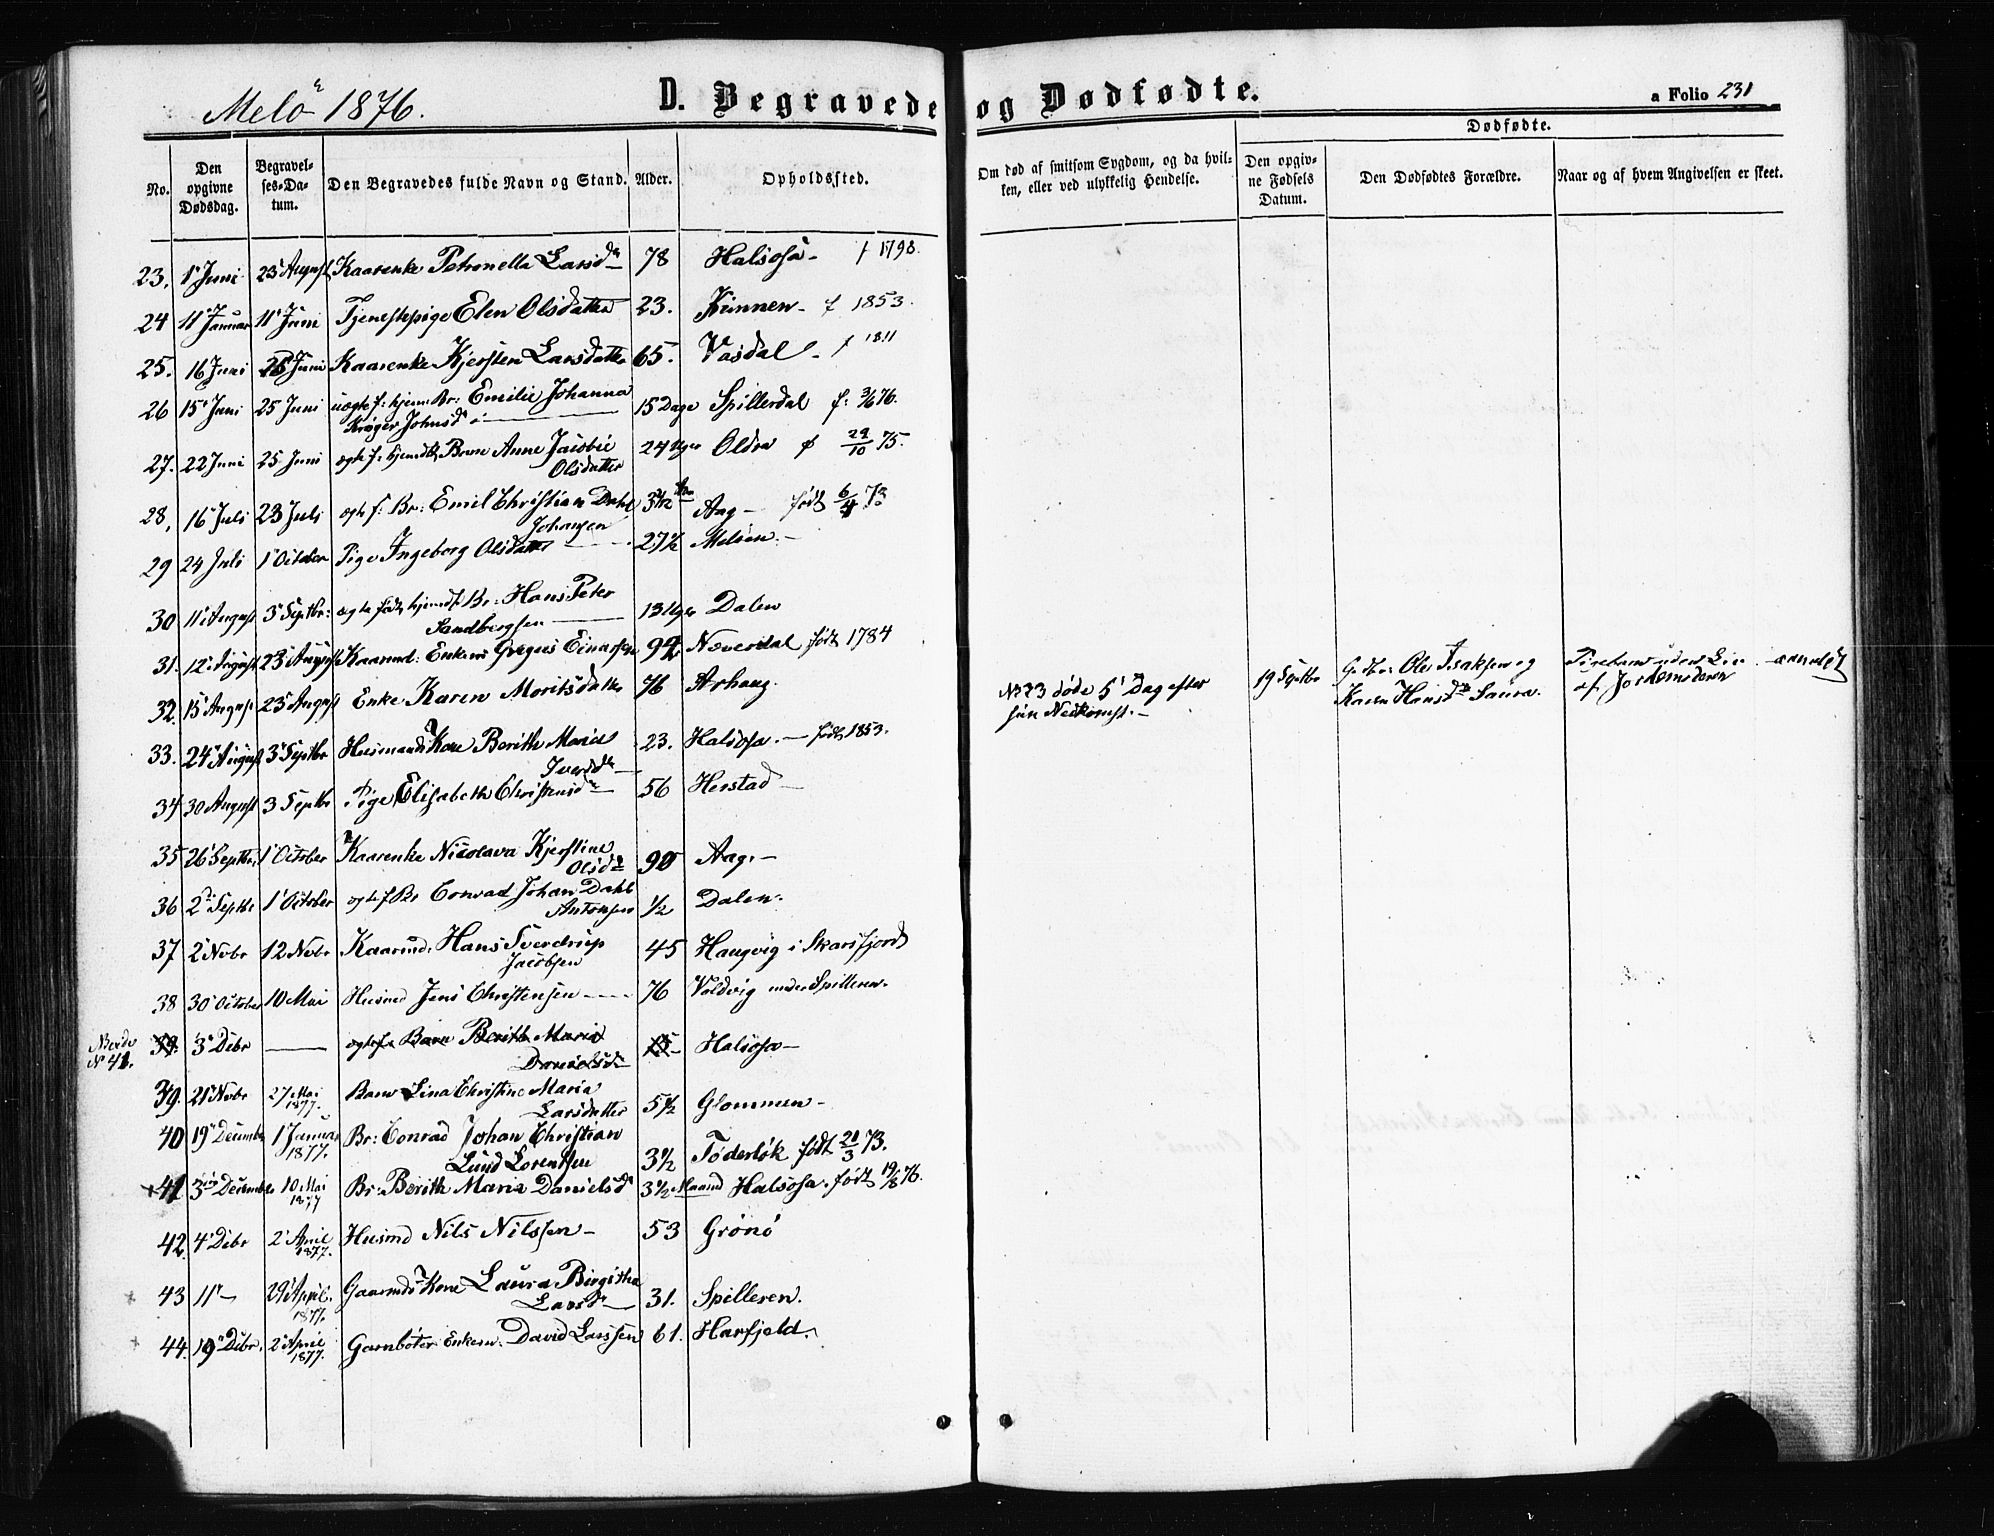 Melö 1876.
D. Begravede og Dødfødte.
a Folio 231
No.
Den opgivne Dødsdag.
Begravelses-Datum.
Den Begravedes fulde Navn og Stand.
Alder.
Opholdssted.
Om død af smitsom Sygdom, og da hvilken, eller ved ulykkelig Hendelse.
Dødfødte.
Den opgivne Fødsels Datum.
Den Dødfødtes Forældre.
Naar og af hvem Angivelsen er skeet.
23. 1' Juni 23' August Kaarenke Petronella Larsdr 78 Halsosa - f 1798.
24 11' Januar 11' Juni Tjenestepige Elen Olsdatter 23. Kunnen - f 1853.
25. 16 Juni 25 Juni Kaarenke Kjersten Larsdatter 65. Vasdal - f 1811
26 15' Juni 25 Juni uægte f: hjem: Br: Emilie Johanna 15 Dage Spillerdal f: 76.
Krøger Johnsdr
27. 22 Juni 25 Juni ægte f. hjemdbt Barn Anne Jacobie 24 Uger Oldra f 29/10 75.
Olsdatter
28, 16' Juli 23 Juli ægte f: Br: Emil Christian Dahl Aag - født 6/4 73
Johansen
29 24 Juli 1' October Pige Ingeborg Olsdatter 27½ Melöen -
30 11' August 3' Septbr: ægte født hjemdf. Br: Hans Peter 13 Uger Dalen
Sandbergsen
31. 12' August 23' August Kaarmd: Enkem Gregus Einarsen 92 Næverdal født 1784
32. 15' August 23' August Enke Karen Moritsdatter 76 Arhaug.
No 23 døde 5' Dag efter
sin Nedkomst. -
19 Septbr
Gaardm: Ole Isaksen og
Karen Hansdr Saura.
af Jordemoderen
33. 24' August 3' Septbr Husmands Kone Berith Maria 23. Halsosa. - født 1853.
Iversdr
34 30 August 3 Septbr Pige Elisabeth Christensdr 56 Herstad -
35 26' Septbr, 1' October Kaarenke Nicolava Kjerstine 90 Aag. -
Olsdr
36 2' Septbr 1' October ægte f Br Conrad Johan Dahl ½ Dalen.
Antonsen
37 2' Nvbr 12 Nvbr Kaarmd. Hans Sverdrup 45 Haugvig i Skarsfjord
Jacobsen
38 30' October 10 Mai Husmd Jens Christensen 76 Voldvig under Spilleren.
No 41. 39. 3' Debr ægtefr Barn Berith Maria Halsosa -
Danielsdr
39. 21' Nvbr 27 Mai 1877. Barn Lina Christine Maria 5½ Glommen -
Larsdatter
40 19' Decembr 1' Januar 1877. Br: Conrad Johan Christian 3½ Töderlök født 21/3 73.
Lund Lorentsen
41 3' December 10 Mai 1877 Br. Berith Maria Danielsdr 3½ Maaned Halsosa. født 19/8 76.
42. 4' Debr 2' April 1877. Husmd Nils Nilssen - 53 Grönö
43 11' - 29' April. 1877. Gaarmds Kone Laura Birgitha 31. Spilleren.
Larsdr
44. 19' Debr. 2' April 1877. Garnböter Enkem. David Larssen 61. Harfjeld.